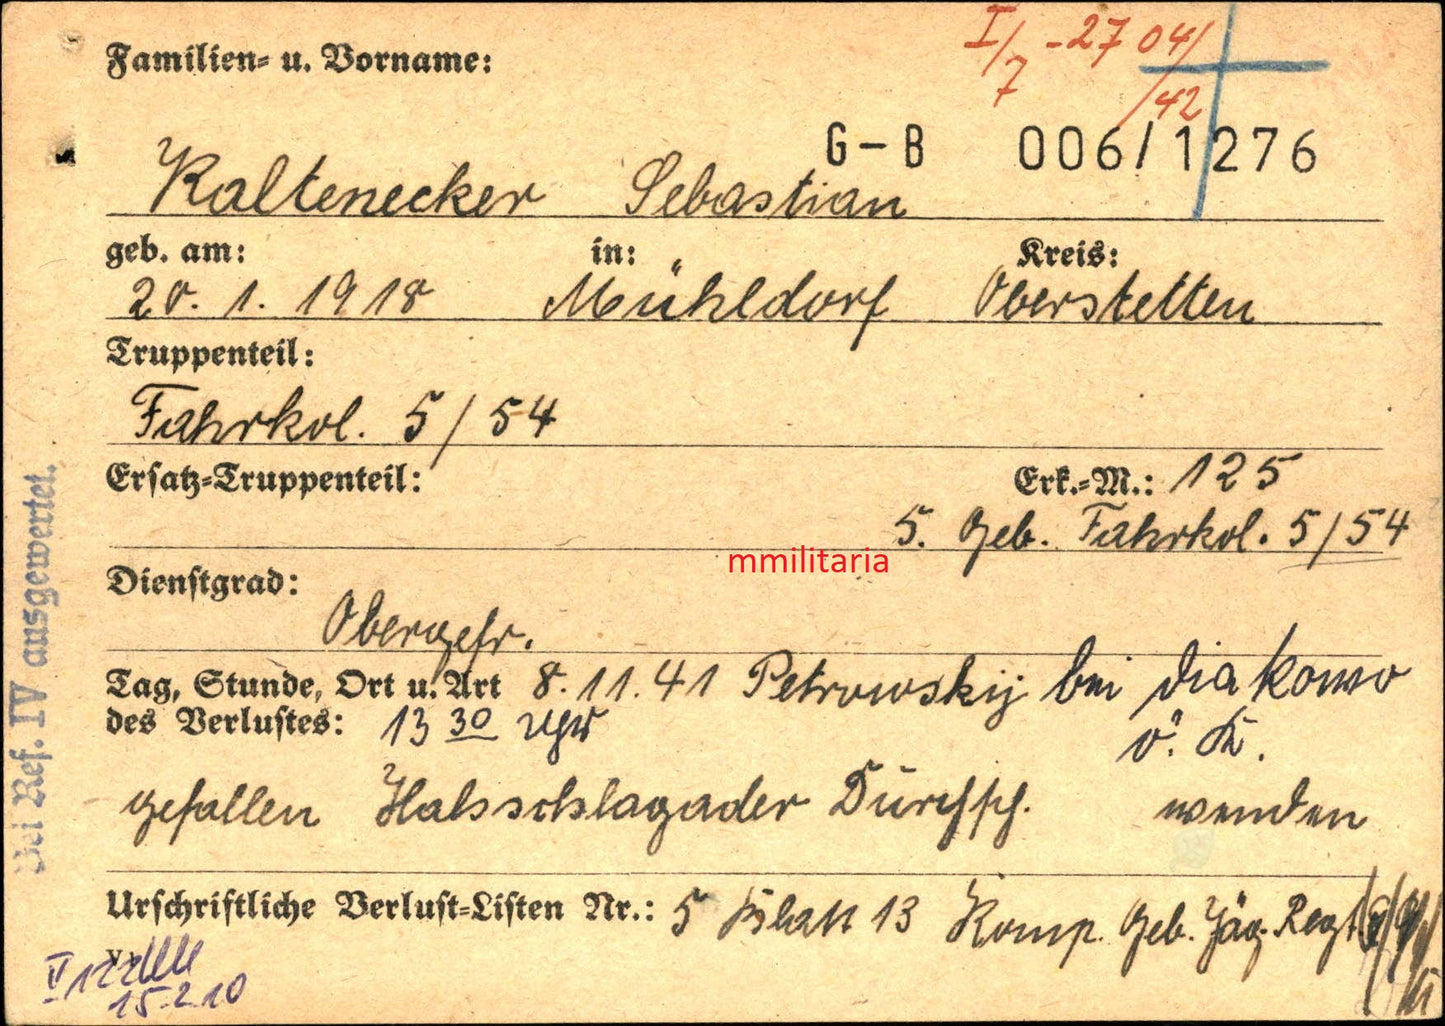 I/7 -27 04/42
Familien- u. Vorname:
G-B 006/1276
Kaltenecker Sebastian
geb. am: in: Kreis:
20. 1. 1918 Mühldorf Oberstetten
Truppenteil:
Fahrkol. 5/54
Ersatz-Truppenteil: Erk.-M.: 125
5. Geb. Fahrkol. 5/54
mmilitaria
Dienstgrad:
Obergefr.
Tag, Stunde, Ort u. Art 8. 11. 41 Petrowskij bei Diakowo
des Verlustes: 13 30 Uhr ö. K.
gefallen Halsschlagader Durchsch. wenden
Urschriftliche Verlust-Listen Nr.: 5 Blatt 13 Komp. Geb. Jäg. Regt.
15.2.10
Bei Ref. IV ausgewertet.